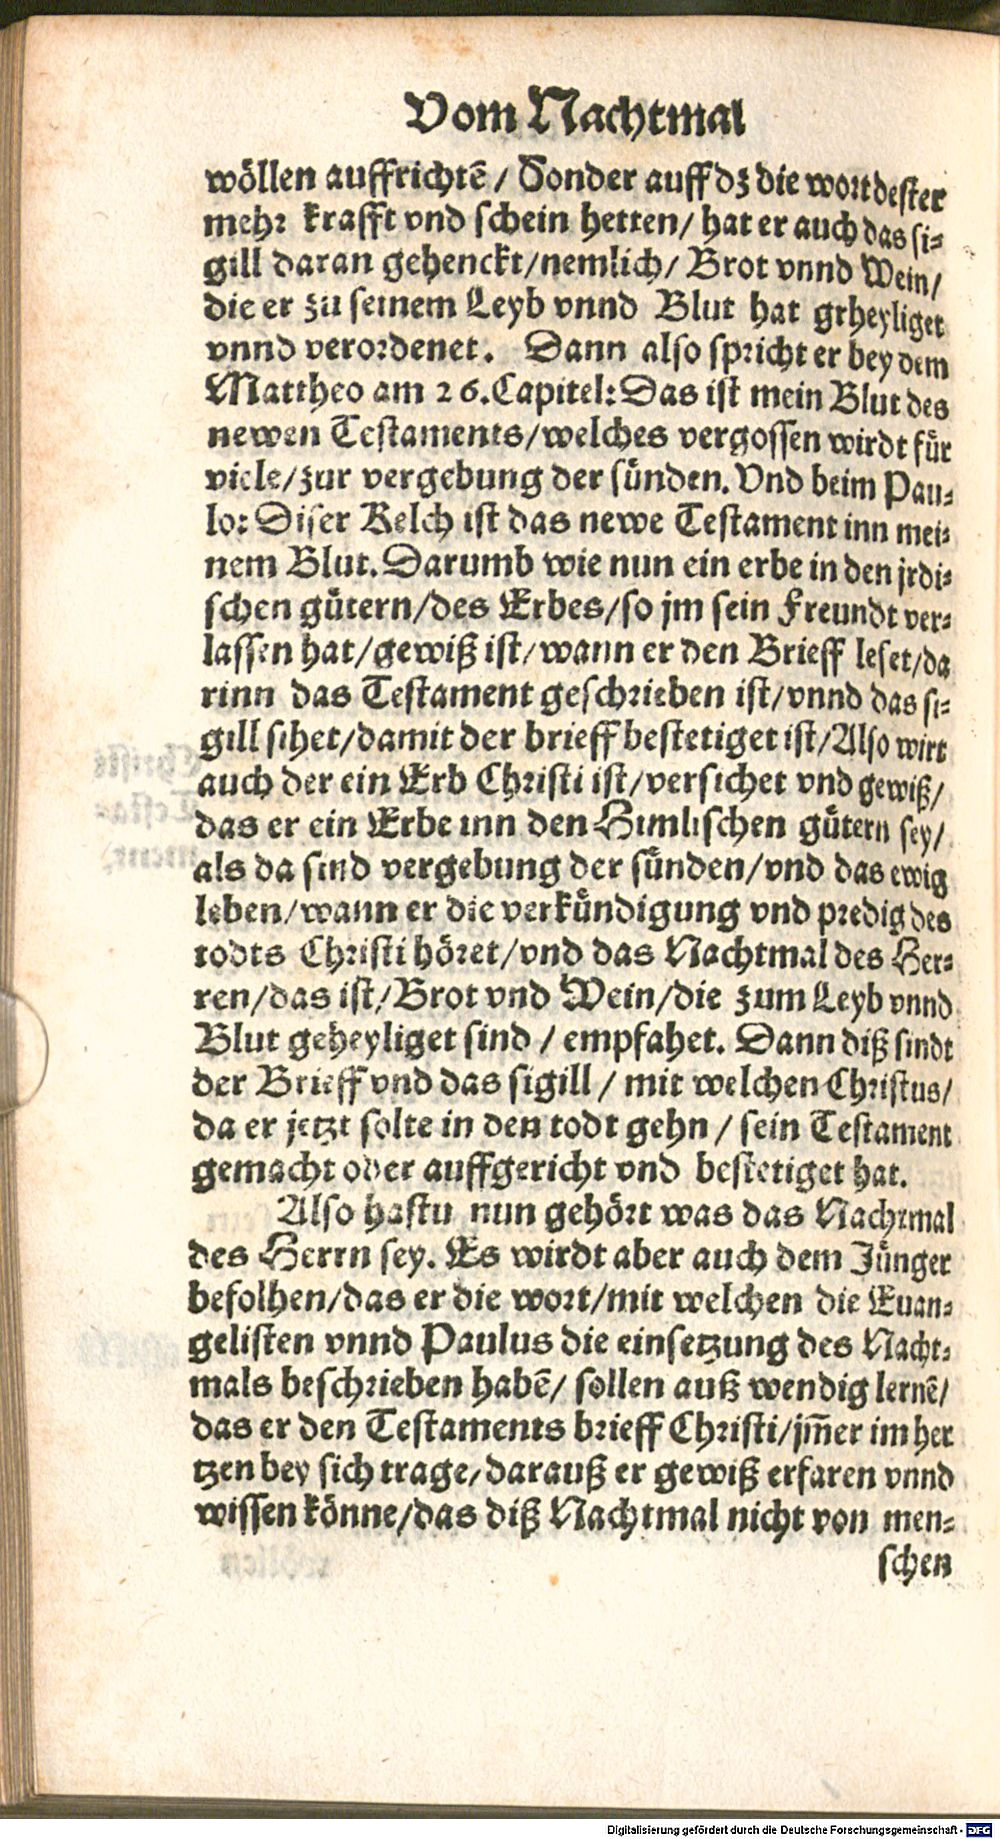 Vom Nachtmal
wöllen auffrichtē / Sonder auff dz die wort dester
mehr krafft vnd schein hetten/ hat er auch das si-
gill daran gehenckt/nemlich/ Brot vnnd Wein/
die er zu seinem Leyb vnnd Blut hat grheyliget
vnnd verordenet. Dann also spricht er bey dem
Mattheo am 26.Capitel: Das ist mein Blut des
newen Testaments/welches vergossen wirdt für
viele/zur vergebung der sünden. Vnd beim Pau-
lo: Diser Kelch ist das newe Testament inn mei-
nem Blut. Darumb wie nun ein erbe in den jrdi-
schen gütern/des Erbes/so jm sein Freundt ver-
lassen hat/gewiß ist/wann er den Brieff leset/da
rinn das Testament geschrieben ist/vnnd das si-
gill sihet/damit der brieff bestetiget ist/Also wirt
auch der ein Erb Christi ist/versichet vnd gewiß/
das er ein Erbe inn den Himlischen gütern sey/
als da sind vergebung der sünden/vnd das ewig
leben/wann er die verkündigung vnd predig des
todts Christi höret/vnd das Nachtmal des Her-
ren/das ist/Brot vnd Wein/die zum Leyb vnnd
Blut geheyliget sind / empfahet. Dann diß sindt
der Brieff vnd das sigill / mit welchen Christus/
da er jetzt solte in den todt gehn / sein Testament
gemacht oder auffgericht vnd bestetiget hat.
Also hastu nun gehört was das Nachtmal
des Herrn sey. Es wirdt aber auch dem Jünger
befolhen/das er die wort/mit welchen die Euan-
gelisten vnnd Paulus die einsetzung des Nacht-
mals beschrieben habē/ sollen auß wendig lernē/
das er den Testaments brieff Christi/jm̄er im her
tzen bey sich trage/darauß er gewiß erfaren vnnd
wissen könne/das diß Nachtmal nicht von men-
schen
Digitalisierung gefördert durch die Deutsche Forschungsgemeinschaft - DFG